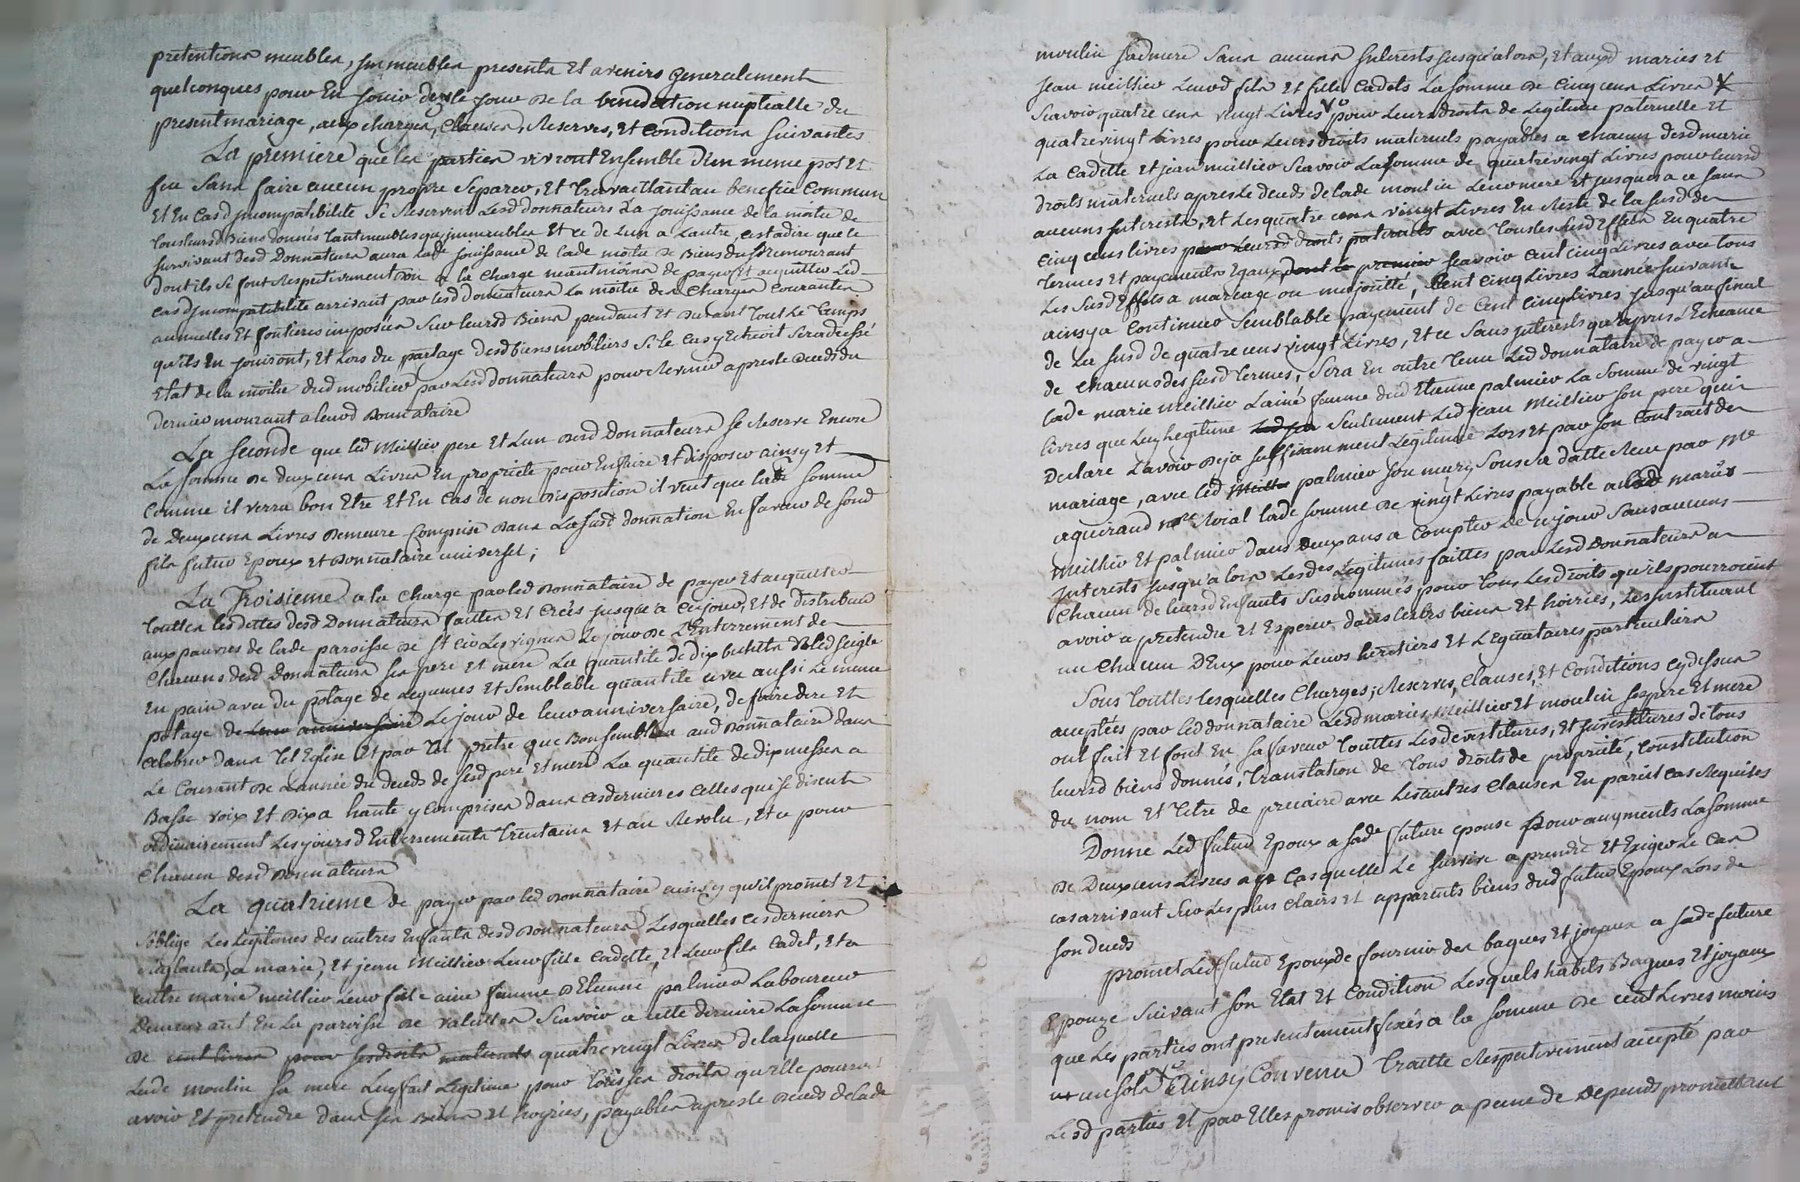 pretentions meubles, immeubles presents Et avenirs generalement
quelconques pour En Jouir dez le jour de la benediction nuptialle du
present mariage, aux charges, Clauses, Reserves, Et Conditions suivantes
La premiere que les parties vivront Ensemble d'un meme pot et
feu sans faire aucun propre separer, Et travaillant au benefice Commun
Et En Cas d'incompatibilité Se Reservent Lesd donnateurs La jouissance de la moitié de
tous leurs d Biens donnés tant meubles que immeubles Et ce de L'un a L'autre, cestadire que le
survivant desd Donnateurs aura lade jouissance de lade moitié de Biens du Premourant
dont ils se font Respectivement don a la charge neantmoins de payer et acquitter led
cas d'incompatibilité arrivant par lesd donnateurs La moitié des Charges Courantes
annuelles Et foncieres imposées sur leursd Biens pendant Et Durant tout Le temps
qu'ils En Jouiront, Et Lors du partage desd biens mobiliers si le cas y Echoit sera dressé
Etat de la moitié dud mobilier par Lesd donnateurs pour Revenir apres le Deceds du
dernier mourant a leurd Donnataire
La seconde que led Meillier pere Et L'un desd donnateurs se Reserve Encore
La somme de deux cens Livres En propriete pour En faire Et disposer ainsy Et
Comme il verra bon Etre Et En Cas de non disposition il veut que lade somme
de Deux cens Livres Demeure Comprise Dans La susd donnation En faveur de sond
fils futur Epoux Et Donnataire universel ;
La Troisieme a la Charge par led Donnataire de payer Et acquitter
touttes les dettes desd Donnateurs faittes Et Creés jusque a ce jour, Et de distribuer
aux pauvres de lade paroisse de St Cir Les vignes Le jour de L'Enterrement de
Chacuns desd Donnateurs ses pere Et mere La quantité de dix bichets Bled seigle
En pain avec du potage de Legumes Et semblable quantité avec aussi Le meme
potage de leur anniversaire Le jour de leur anniversaire, de faire dire Et
Celebrer dans tel Eglise Et par tel prêtre que Bon semblera aud Donnataire dans
Le Courant de L'année du deceds de sesd pere Et mere La quantité de dix messes a
Basse voix Et dix a haute y Comprises dans ces dernieres celles qui se disent
ordinairement Les jours d'Enterrements Trentains Et au Revolu, Et ce pour
Chacun desd Donnateurs
La quatrieme de payer par led Donnataire ainsy qu'il promet Et
s'oblige Les Legitimes des autres Enfants desd Donnateurs Lesquelles ces derniers
Reglants a marie, Et jean Meillier Leur fille Cadette, Et Leur fils Cadet, Et a
autre marie meillier Leur fille ainé femme d'Etienne palmier Laboureur
Demeurant En La paroisse de valeilles Scavoir a cette derniere La somme
de cent livres pour ses droits maternels quatre vingt Livres de laquelle
Lade moulin sa mere Luy fait Legitime pour tous les droits qu'elle pourra
avoir Et pretendre dans ses Biens Et hoyries, payables apres le Deceds de lade
moulin sadmere sans aucuns Interests jusqu'alors, Et auxd maries Et
jean meillier Leursd fils Et fille Cadets La somme de Cinq cens Livres
Scavoir quatre cens vingt Livres pour Leurs droits de Legitime paternelle Et
quatre vingt Livres pour Leurs Droits maternels payables a chacun desd marie
La Cadette Et jean meillier Scavoir La somme de quatre vingt Livres pour leursd
Droits maternels apres Le deceds de lade moulin Leur mere Et jusques a ce sans
aucuns Interests, Et Les quatre cens vingt Livres En Reste de la susd de
Cinq cens livres pour leursd droits paternels avec tous les susd Effets En quatre
termes Et payements Egaux dont le premier scavoir cent cinq Livres avec tous
Les susd Effets a mariage ou majorité, Cent cinq Livres L'année suivante
ainsy a Continuer semblable payement de Cent Cinq Livres jusqu'au final
de La susd de quatre cens vingt Livres, Et ce sans Interests qu'apres L'Echeance
de chacuns des susd termes, sera En outre tenu Led donnataire de payer a
lade marie Meillier L'ainé femme dud Etienne palmier La somme de vingt
livres que Luy Legitime Seulement Led Jean Meillier son pere qui
Declare L'avoir Deja suffisamment Legitimé Lors Et par son Contrat de
mariage, avec led palmier son mary sous sa datte Reçu par Me
aquiraud nore Roial lade somme de vingt Livres payable auxd mariés
Meillier Et palmier dans Deux ans a Compter de ce jour sans aucuns
Interests jusqu'alors Lesdes Legitimes faittes par Lesd Donnateurs a
Chacun de leursd Enfants susnommés pour tous Les droits qu'ils pourroient
avoir a pretendre Et Esperer dans leursd biens Et hoiries, Les Instituant
un Chacun D'Eux pour Leurs heritiers Et Legataires particuliers
Sous touttes lesquelles Charges, Reserves, Clauses, Et Conditions cy dessus
acceptées par led donnataire Lesd maries Meillier Et moulin ses pere Et mere
ont fait Et font En sa faveur touttes Les devestitures, Et Investitures de tous
leursd biens donnés, translation de tous droits de propriété, Constitution
du nom Et titre de precaire avec Les autres Clauses En pareil cas Requises
Donne Led futur Epoux a sade future epouse pour augments La somme
de Deux cens Livres a Cas quelle Le survive a prendre Et Exiger Le Cas
cas arrivant sur Les plus clairs Et apparents biens dud futur Epoux Lors de
son deceds
promet Led futur Epoux de fournir des bagues Et joyaux a sade future
Epouze suivant son Etat Et Condition Lesquels habits Bagues Et joyaux
que Les parties ont presentement fixés a la somme de cent Livres moins
un sols Ainsy Convenu Traitte Respectivement accepté par
Lesd parties Et par Elles promis observer a peine de Depends promettant